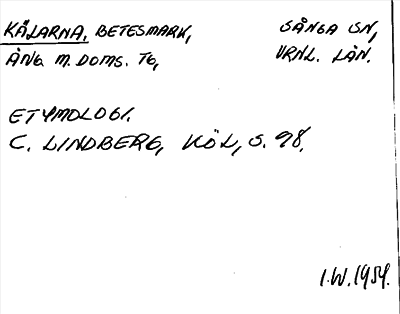 KÄLARNA, BETESMARK, SÅNGA SN,
ÅNG. M. DOMS. TG, VRNL. LÄN.
ETYMOLOGI.
C. LINDBERG, KÖL, S. 98.
I.W. 1954.